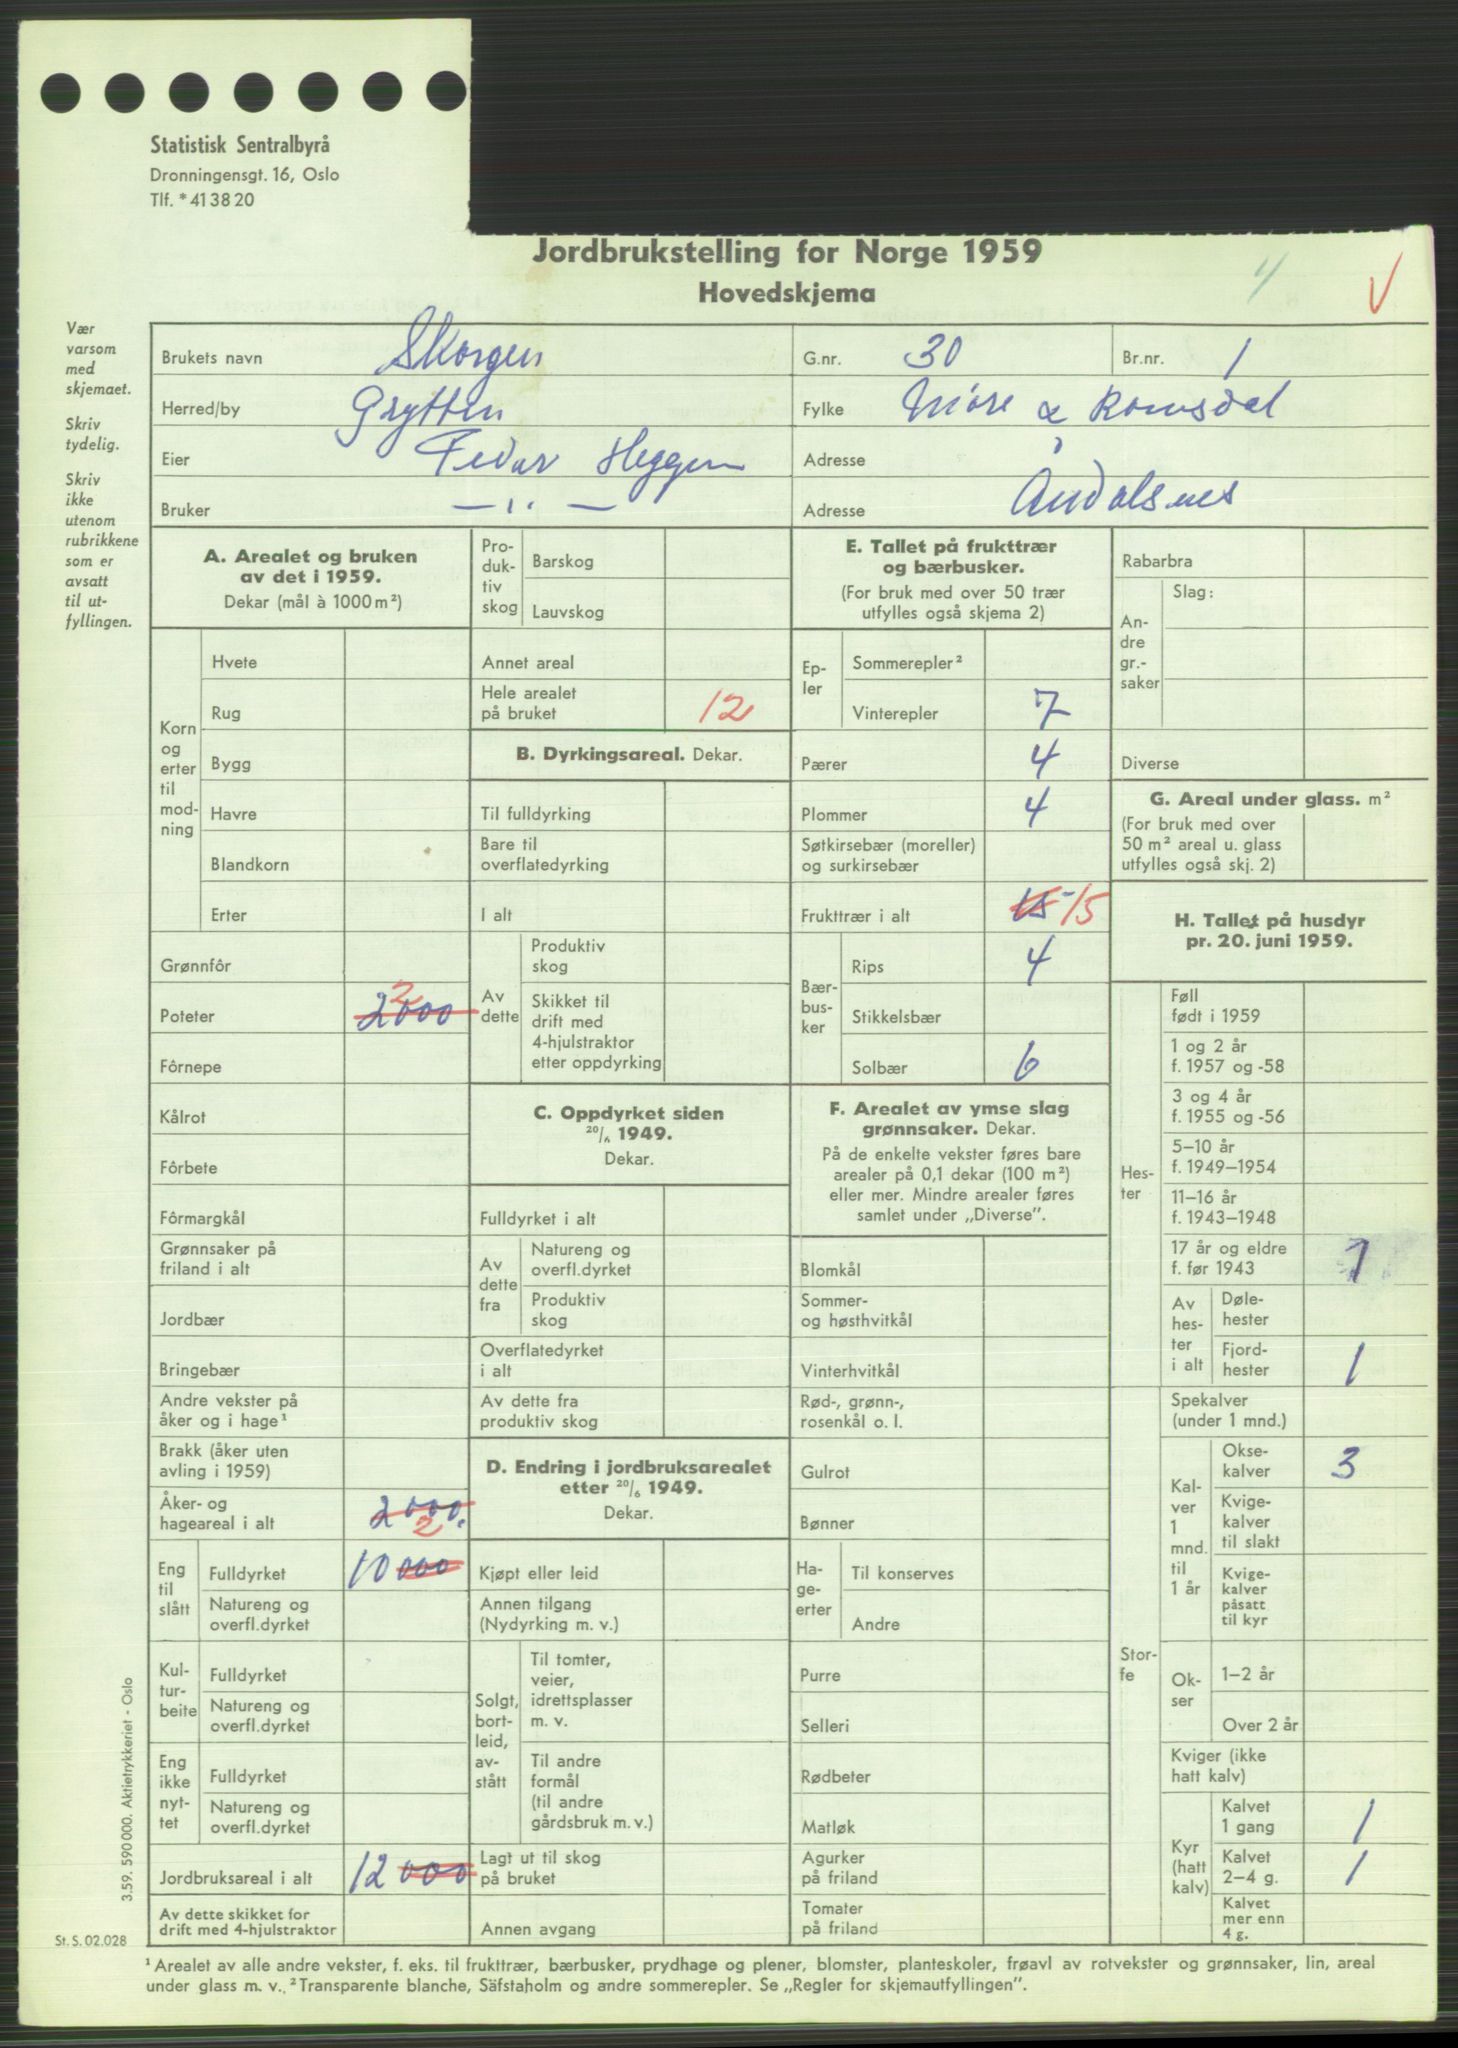 Statistisk Sentralbyrå
Dronningensgt. 16, Oslo
Tlf. * 41 38 20
Jordbrukstelling for Norge 1959
Hovedskjema
4
Vær
varsom
med
skjemaet.
Skriv
tydelig.
Skriv
ikke
utenom
rubrikkene
som er
avsatt
til ut-
fyllingen.
Brukets navn Skorgen G.nr. 30 Br.nr. 1
Herred/by Grytten Fylke Møre & Romsdal
Eier Pedar Heggen Adresse
Bruker — " — Adresse Åndalsnes
A. Arealet og bruken
av det i 1959.
Dekar (mål à 1000 m²)
Korn
og
erter
til
mod-
ning
Hvete
Rug
Bygg
Havre
Blandkorn
Erter
Grønnfôr
Poteter 2000 2
Fôrnepe
Kålrot
Fôrbete
Fôrmargkål
Grønnsaker på
friland i alt
Jordbær
Bringebær
Andre vekster på
åker og i hage¹
Brakk (åker uten
avling i 1959)
Åker- og
hageareal i alt 2000. 2
Eng
til
slått
Fulldyrket 10000
Natureng og
overfl.dyrket
Kul-
tur-
beite
Fulldyrket
Natureng og
overfl.dyrket
Eng
ikke
nyt-
tet
Fulldyrket
Natureng og
overfl.dyrket
Jordbruksareal i alt 12000
Av dette skikket for
drift med 4-hjulstraktor
Pro-
duk-
tiv
skog
Barskog
Lauvskog
Annet areal
Hele arealet
på bruket 12
B. Dyrkingsareal. Dekar.
Til fulldyrking
Bare til
overflatedyrking
I alt
Av
dette
Produktiv
skog
Skikket til
drift med
4-hjulstraktor
etter oppdyrking
C. Oppdyrket siden
20/6 1949.
Dekar.
Fulldyrket i alt
Av
dette
fra
Natureng og
overfl.dyrket
Produktiv
skog
Overflatedyrket
i alt
Av dette fra
produktiv skog
D. Endring i jordbruksarealet
etter 20/6 1949.
Dekar.
Kjøpt eller leid
Annen tilgang
(Nydyrking m. v.)
Solgt,
bort-
leid,
av-
stått
Til tomter,
veier,
idrettsplasser
m. v.
Til andre
formål
(til andre
gårdsbruk m. v.)
Lagt ut til skog
på bruket
Annen avgang
E. Tallet på frukttrær
og bærbusker.
(For bruk med over 50 trær
utfylles også skjema 2)
Ep-
ler
Sommerepler²
Vinterepler 7
Pærer 4
Plommer 4
Søtkirsebær (moreller)
og surkirsebær
Frukttrær i alt 15 15
Bær-
bus-
ker
Rips 4
Stikkelsbær
Solbær 6
F. Arealet av ymse slag
grønnsaker. Dekar.
På de enkelte vekster føres bare
arealer på 0,1 dekar (100 m²)
eller mer. Mindre arealer føres
samlet under „Diverse”.
Blomkål
Sommer-
og høsthvitkål
Vinterhvitkål
Rød-, grønn-,
rosenkål o. l.
Gulrot
Bønner
Ha-
ge-
erter
Til konserves
Andre
Purre
Selleri
Rødbeter
Matløk
Agurker
på friland
Tomater
på friland
Rabarbra
An-
dre
gr.-
saker
Slag:
Diverse
G. Areal under glass. m²
(For bruk med over
50 m² areal u. glass
utfylles også skj. 2)
H. Tallet på husdyr
pr. 20. juni 1959.
Hes-
ter
Føll
født i 1959
1 og 2 år
f. 1957 og -58
3 og 4 år
f. 1955 og -56
5–10 år
f. 1949–1954
11–16 år
f. 1943–1948
17 år og eldre
f. før 1943 1
Av
hes-
ter
i alt
Døle-
hester
Fjord-
hester 1
Stor-
fe
Spekalver
(under 1 mnd.)
Kal-
ver
1
mnd.
til
1 år
Okse-
kalver 3
Kvige-
kalver
til slakt
Kvige-
kalver
påsatt
til kyr
Ok-
ser
1–2 år
Over 2 år
Kviger (ikke
hatt kalv)
Kyr
(hatt
kalv)
Kalvet
1 gang 1
Kalvet
2–4 g. 1
Kalvet
mer enn
4 g.
3.59. 590 000. Aktietrykkeriet - Oslo
St. S. 02.028
¹ Arealet av alle andre vekster, f. eks. til frukttrær, bærbusker, prydhage og plener, blomster, planteskoler, frøavl av rotvekster og grønnsaker, lin, areal
under glass m. v. ² Transparente blanche, Säfstaholm og andre sommerepler. Se „Regler for skjemautfyllingen”.